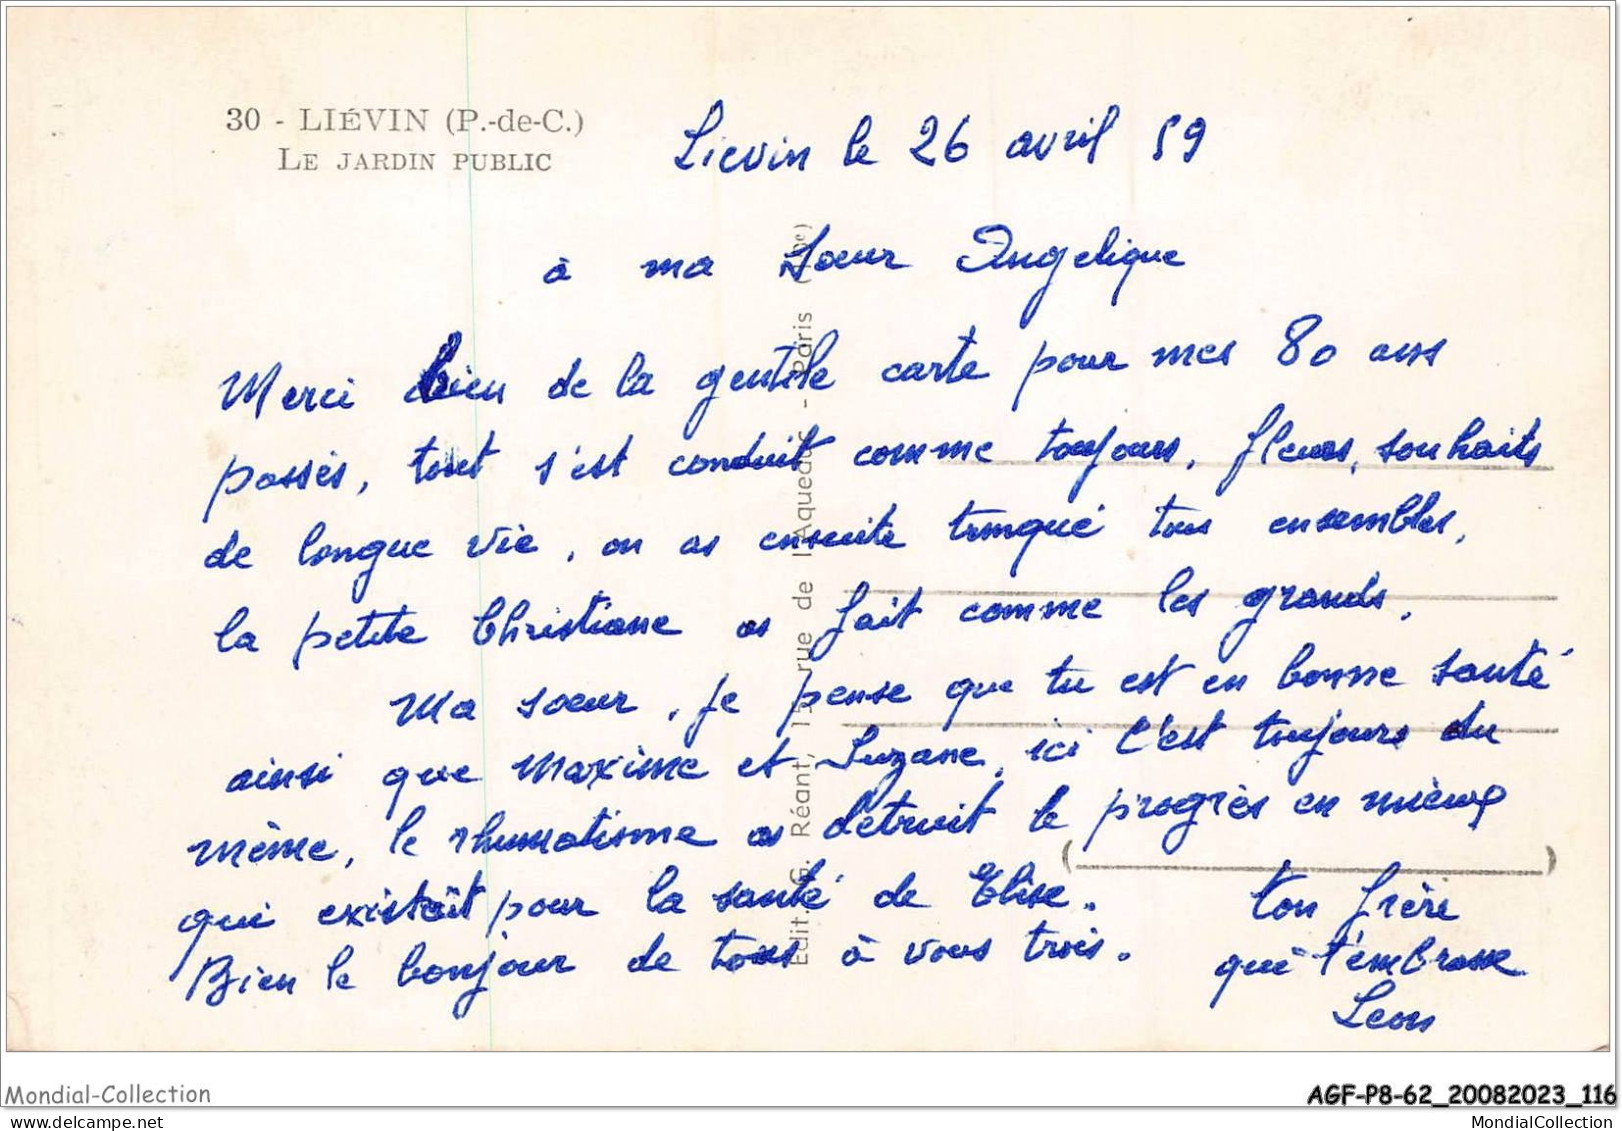 30 - LIÉVIN (P.-de-C.)
LE JARDIN PUBLIC
Lievin le 26 avril 59
à ma Soeur Angelique
Merci bien de la gentile carte pour mes 80 ans
passés, tout s'est conduit comme toujours, fleurs, souhaits
de longue vie, on as ensuite trinqué tous ensembles,
la petite Christiane as fait comme les grands.
Ma soeur, je pense que tu est en bonne santé
ainsi que Maxime et Suzane, ici c'est toujours du
même, le rhumatisme as detruit le progrès en mieux
qui existait pour la santé de Elise.
Bien le bonjour de tous à vous trois.
ton frère
qui t'embrasse
Leon
Edit. G. Réant, 15 rue de l'Aqueduc - Paris
Mondial-Collection
AGF-P8-62_20082023_116
MondialCollection
MondialCollection